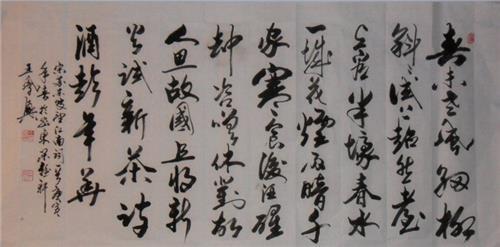 春未老風細柳
斜斜試上超然臺
上看半壕春水
一城花煙雨暗千
家寒食後酒醒
却咨嗟休對故
人思故國且將新
火試新茶詩
酒趁年華
宋蘇東坡望江南詞一首庚寅
年書於
王